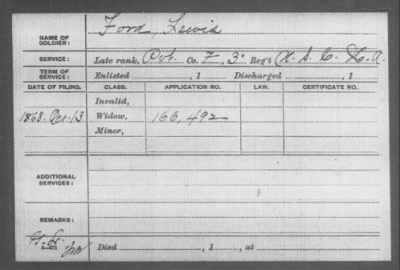 NAME OF SOLDIER: Ford, Lewis
SERVICE: Late rank, Pvt. Co. F, 3" Reg't U.S.C. H.A.
TERM OF SERVICE: Enlisted , 1 Discharged , 1
DATE OF FILING. CLASS. APPLICATION NO. LAW. CERTIFICATE NO.
Invalid,
1868. Oct. 13 Widow, 166,492
Minor,
ADDITIONAL SERVICES:
REMARKS:
Died , 1 , at